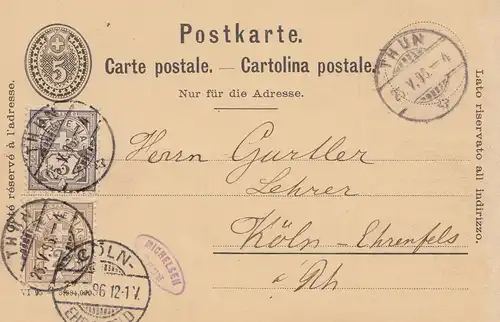 Postkarte.
Carte postale. — Cartolina postale.
Nur für die Adresse.
5
Côté réservé à l'adresse.
Lato riservato all indirizzo.
THUN
THUN
THUN
Herrn Gurtler
Lehrer
Köln-Ehrenfels
a/Rh
MICHELSEN
CÖLN-
96 12-1 V.
VI 95